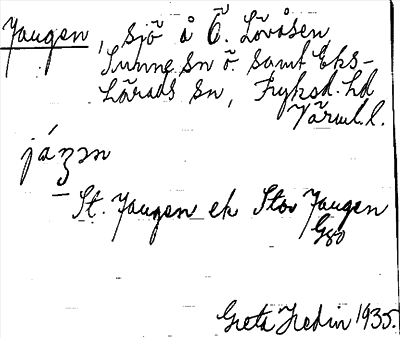 Jangen, sjö å Ö. Lövåsen
Sunne sn ö. samt Eks-
härads sn, Fryksd. hd
Värml. l.
jáŋən
St. Jangen ek Stor Jangen
Ggo
Greta Hedin 1935.